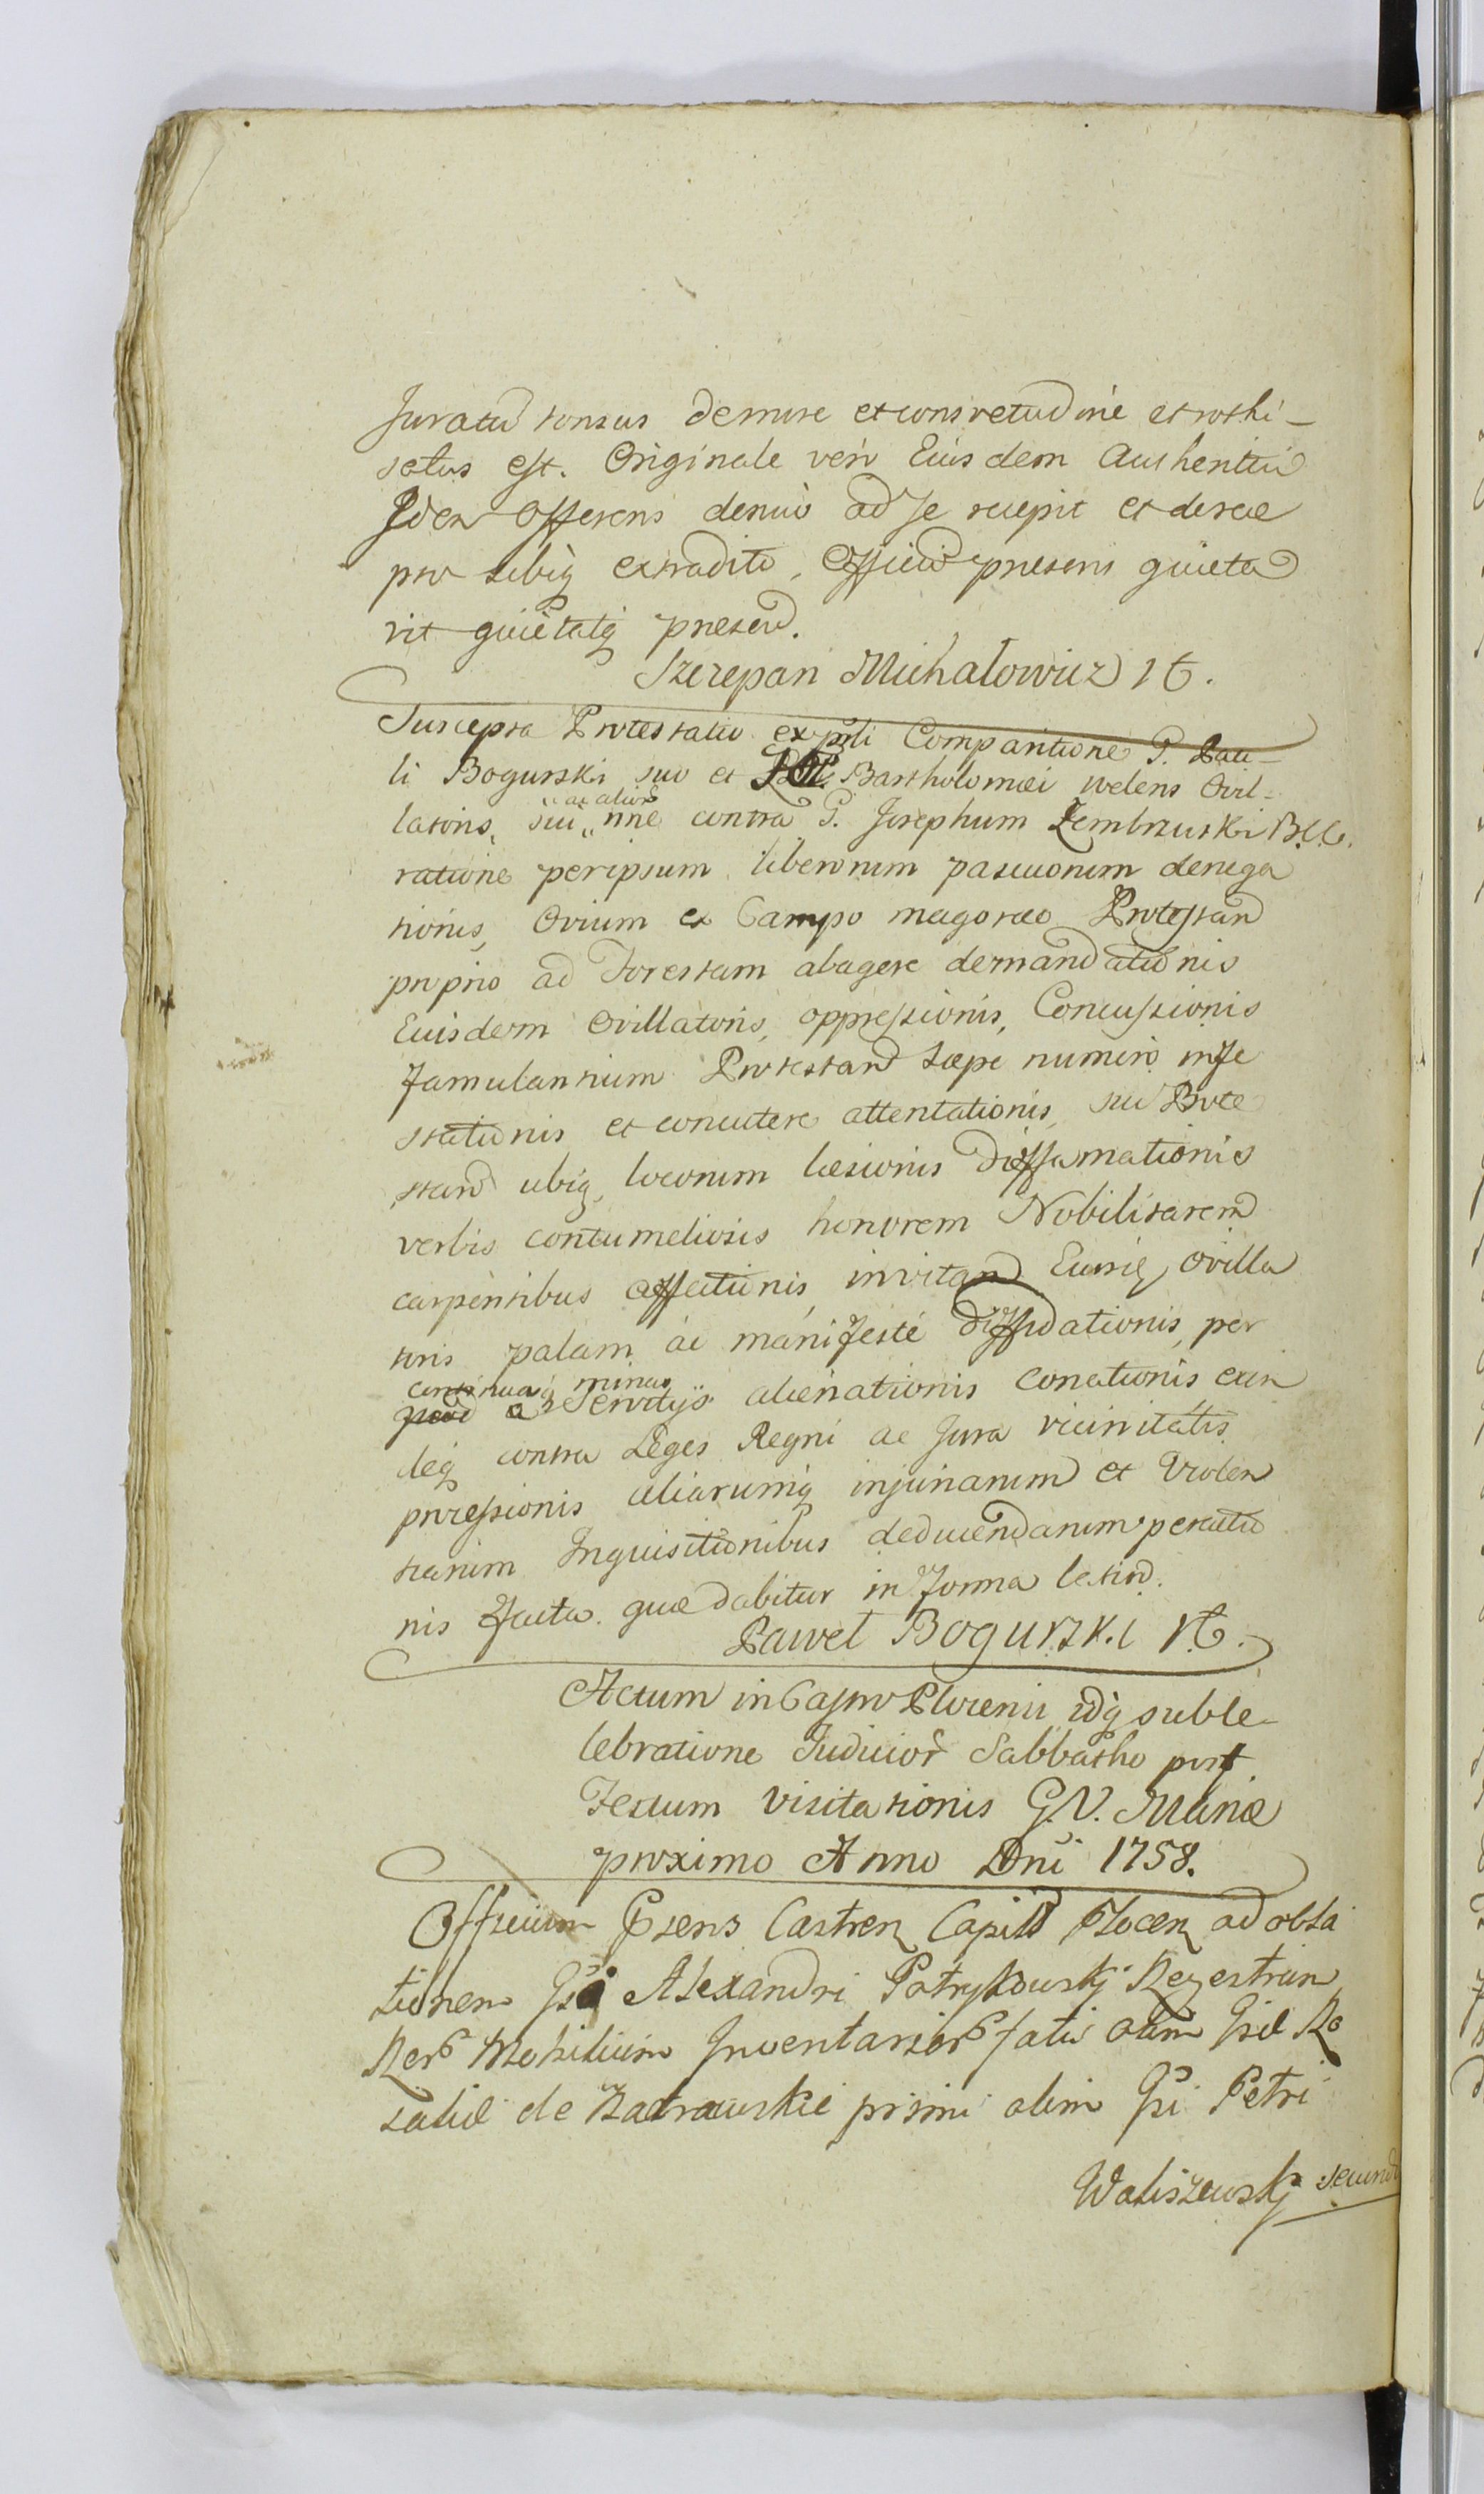 Juratu sonsus demore et consvetudine et rothi-
satus est. Originale vero Eiusdem Authenticu
Idem Offerens denuò ad se recepit et de rece
pto sibiq extradito, Officiu presens quieta
vit quietatq presend.
Szczepan Michałowicz
Suscepta Protestatio ex prsli Comparitione G. Pau-
li Bogurski suo et Bartholomæi Ovil-
latoris, sui ac alior nne contra G. Josephum Zembrzuski
ratione per ipsum liberorum pascuorum denega
tionis, Ovium ex Campo Protestan
proprio ad Forestam abagere demandationis
Eiusdem Ovillatoris, oppressionis, Concussionis
famulantium Protestan sæpe numero infe
stationis et concutere attentationis, sui Prote
stan ubiq locorum læsionis diffamationis
verbis contumeliosis honorem Nobilitarem
carpentibus affectionis, invitan Eiusq Ovilla
toris palam ac manifeste diffidationis, per
continuas minas
a Servitijs alienationis conationis ean
deq contra Leges Regni ac Jura vicinitatis
processionis aliarumq injuriarum et Violen
tiarum Inquisitionibus deducendarum peractio
nis facta. quæ dabitur in forma latiori.
Paweł Bogurski
Actum in Castro Plocensi idq sub Ce-
lebratione Judicior Sabbatho post
Festum Visitationis G. V. Mariæ
proximo Anno Dni 1758.
Officium Psens Castren Capitl Plocen ad obla
tionem Gsi Alexandri Patrykowskij Regestrum
Rer Mobilium Inventarior fatis olim Gsæ Ro
saliæ de Zadrowskie primi olim Gsi Petri
Waliszewskj secundi